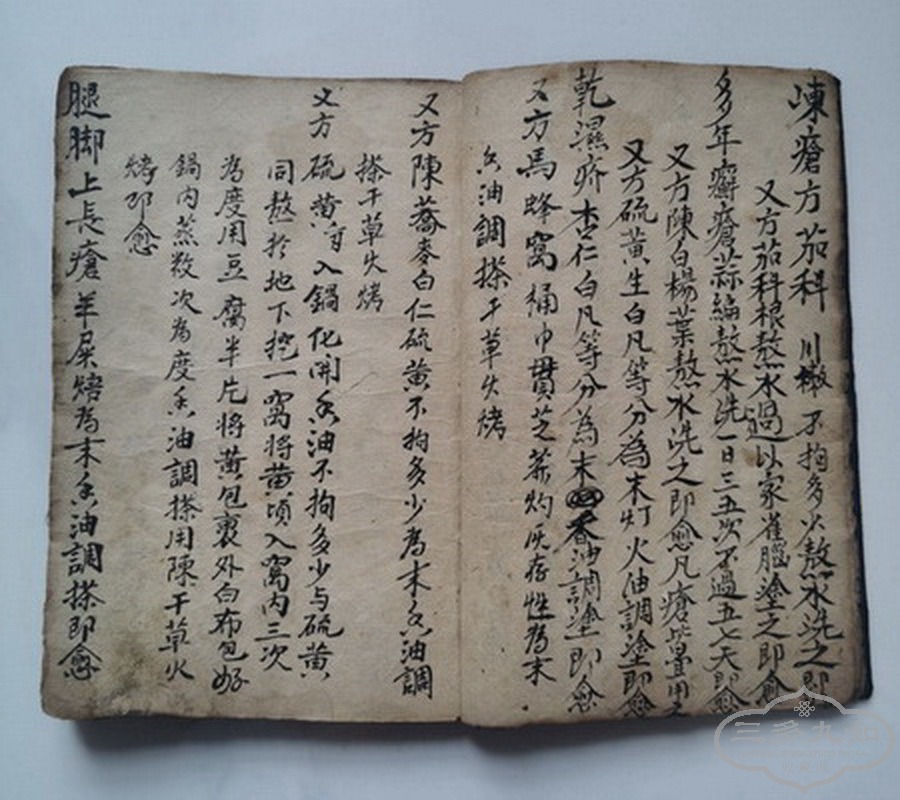 崠瘡方茄科川椒不拘多火熬水洗之即
又方茄科根熬水過以家雀腦塗之即愈
多年癬瘡蒜編熬水洗一日三五次不過五七天即愈
又方陳白楊葉熬水洗之即愈凡瘡皆用之
又方硫黃生白凡等分為末灯火油調塗即愈
乾濕疥杏仁白凡等分為末香油調塗即愈
又方馬蜂窩桶巾貫芝蔴灼灰存性為末
香油調搽干草火烤
又方陳蕎麥白仁硫黃不拘多少為末香油調
搽干草火烤
又方硫黃入鍋化開香油不拘多少与硫黃
同熬於地下挖一窩將黃頃入窩內三次
為度用豆腐半片將黃包裹外白布包好
鍋內蒸数次為度香油調搽用陳干草火
烤即愈
腿脚上長瘡羊屎焙為末香油調搽即愈
三多九如